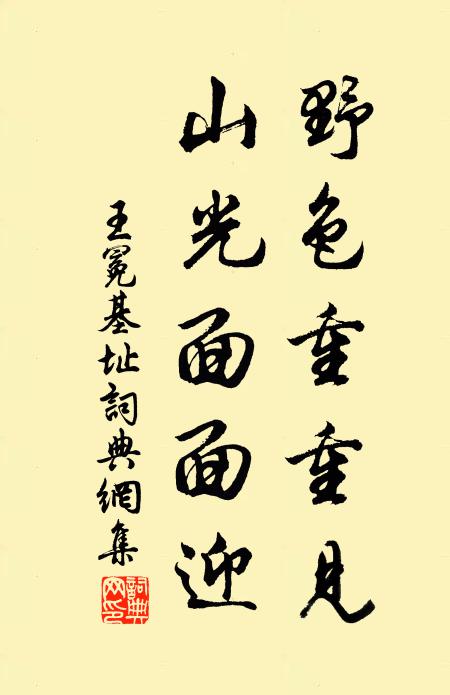 野色重重見
山光面面迎
王冕基址詞典網集
詞典網印